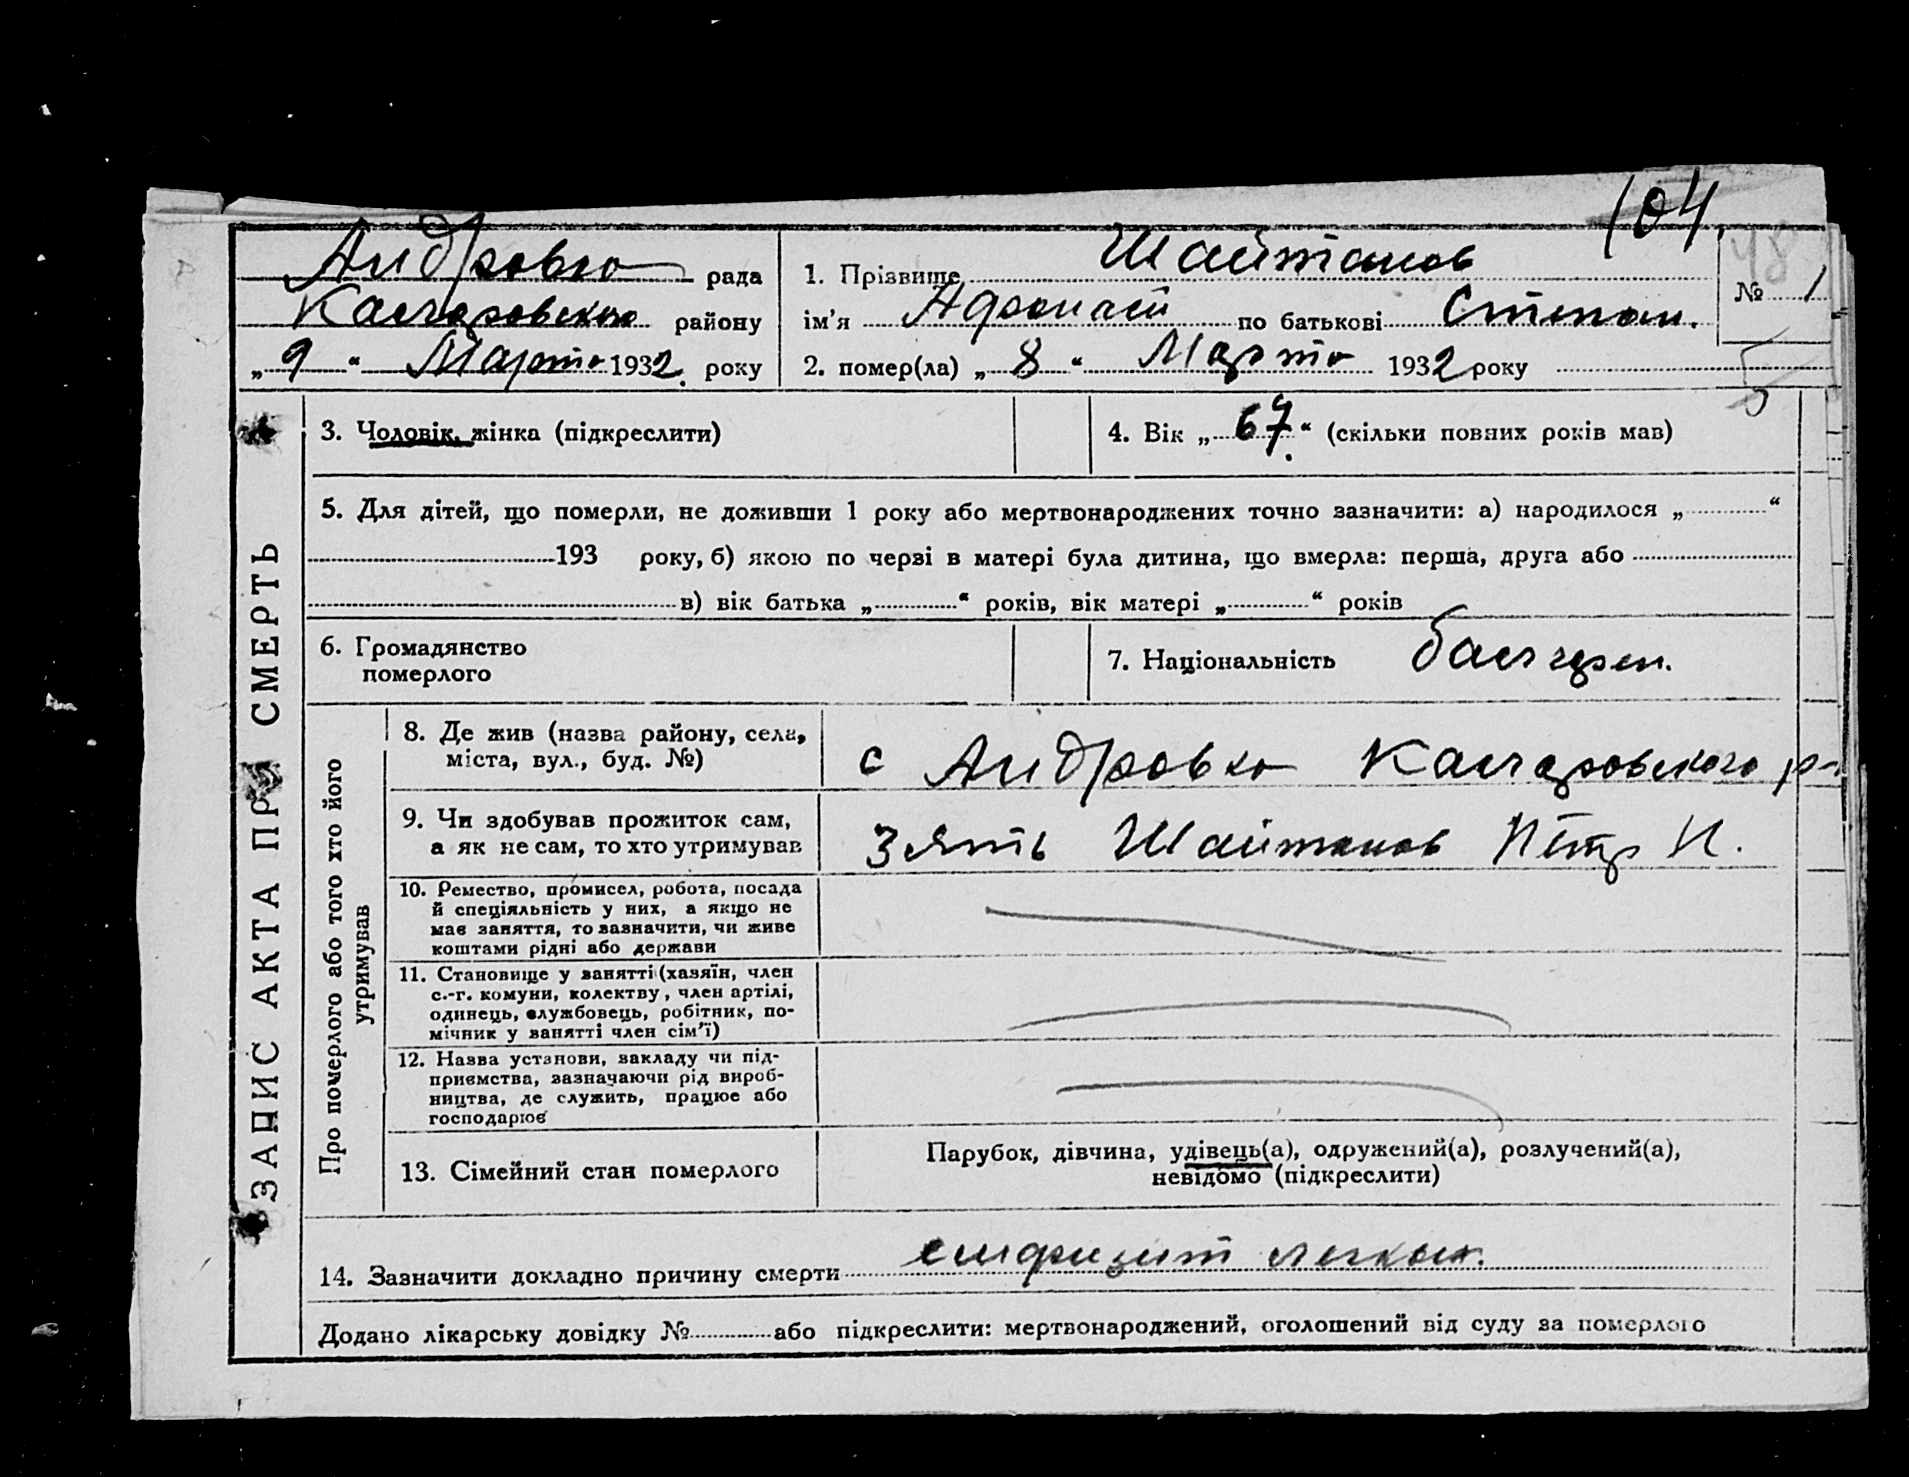 104.
Андровка рада
Колларовского району
„ 9 “ Марта 1932. року
1. Прізвище Шайтанов
ім’я Афонасй по батькові Степан.
2. помер(ла) „ 8 “ Марта 1932 року
48
№ 1
5
ЗАПИС АКТА ПРО СМЕРТЬ
3. Чоловік, жінка (підкреслити)
4. Вік „ 67. “ (скільки повних років мав)
5. Для дітей, що померли, не доживши 1 року або мертвонароджених точно зазначити: а) народилося „ “
193 року, б) якою по черзі в матері була дитина, що вмерла: перша, друга або
в) вік батька „ “ років, вік матері „ “ років
6. Громадянство
померлого
7. Національність болгарин.
Про померлого або того хто його
утримував
8. Де жив (назва району, села,
міста, вул., буд. №)
с Андровка Колларовского р-
9. Чи здобував прожиток сам,
а як не сам, то хто утримував
Зять Шайтанов Пётр И.
10. Ремество, промисел, робота, посада
й спеціяльність у них, а якщо не
має заняття, то зазначити, чи живе
коштами рідні або держави
11. Становище у занятті (хазяїн, член
с.-г. комуни, колектву, член артілі,
одинець, службовець, робітник, по-
мічник у занятті член сім’ї)
12. Назва установи, закладу чи під-
приємства, зазначаючи рід вироб-
ництва, де служить, працює або
господарює
13. Сімейний стан померлого
Парубок, дівчина, удівець(а), одружений(а), розлучений(а),
невідомо (підкреслити)
14. Зазначити докладно причину смерти легких.
Додано лікарську довідку № або підкреслити: мертвонароджений, оголошений від суду за померлого